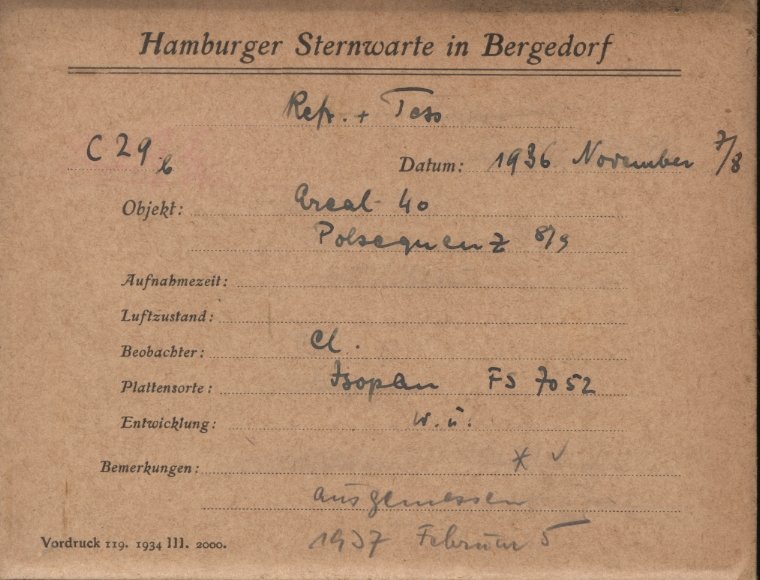 Hamburger Sternwarte in Bergedorf
Refr. + Tess
C 29 b
Datum: 1936 November 7/8
Objekt: Areal 40
Polsequenz 8/9
Aufnahmezeit:
Luftzustand:
Beobachter: Cl.
Plattensorte: Isopan FS 7052
Entwicklung: w. ü.
Bemerkungen: * ✓
ausgemessen
1937 Februar 5
Vordruck 119. 1934 III. 2000.